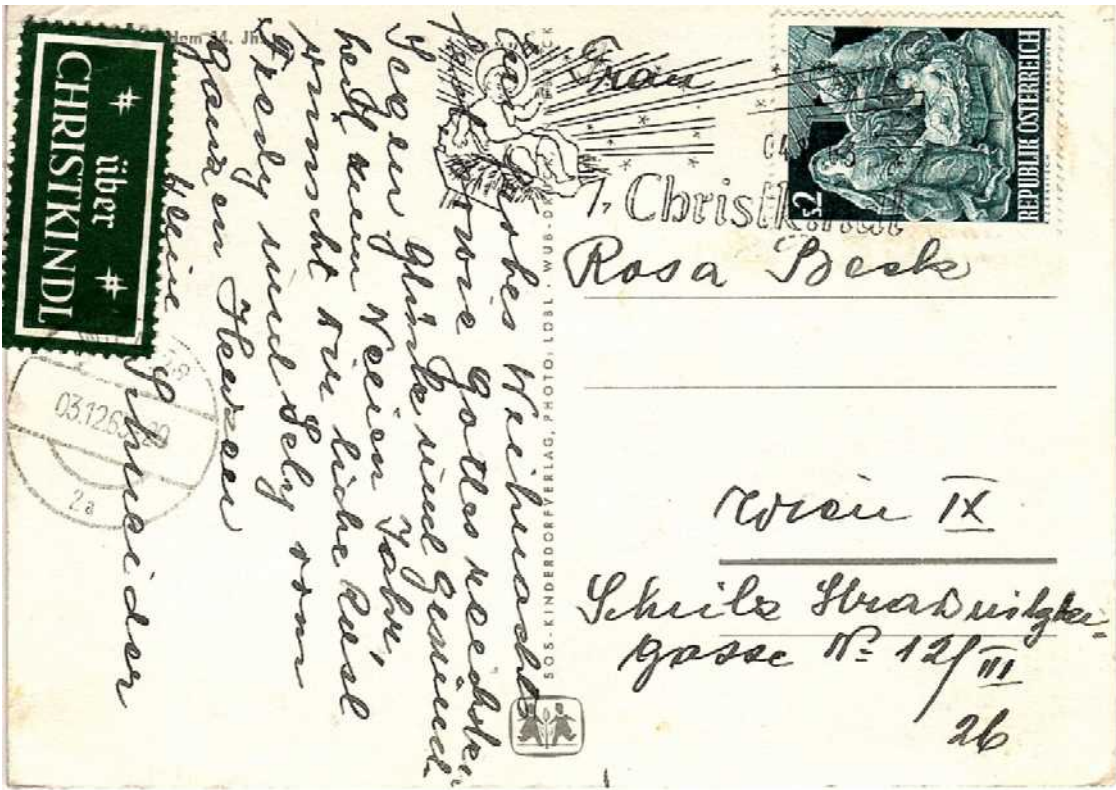 * über *
CHRISTKINDL
14. Jh.
Ein frohes Weihnachts-
fest sowie Gottes reichsten
Segen Glück und Gesund-
heit zum Neuen Jahr,
wünscht dir liebe
Fredy und Gely vom
ganzen Herzen
Schneider
03.12.63
2a
SOS-KINDERDORFVERLAG, PHOTO: LÖBL · WUB-DRUCK
Christkindl
REPUBLIK ÖSTERREICH
S2
Frau
Rosa Beck
Wien IX
Schulz
gasse № 12/III
26